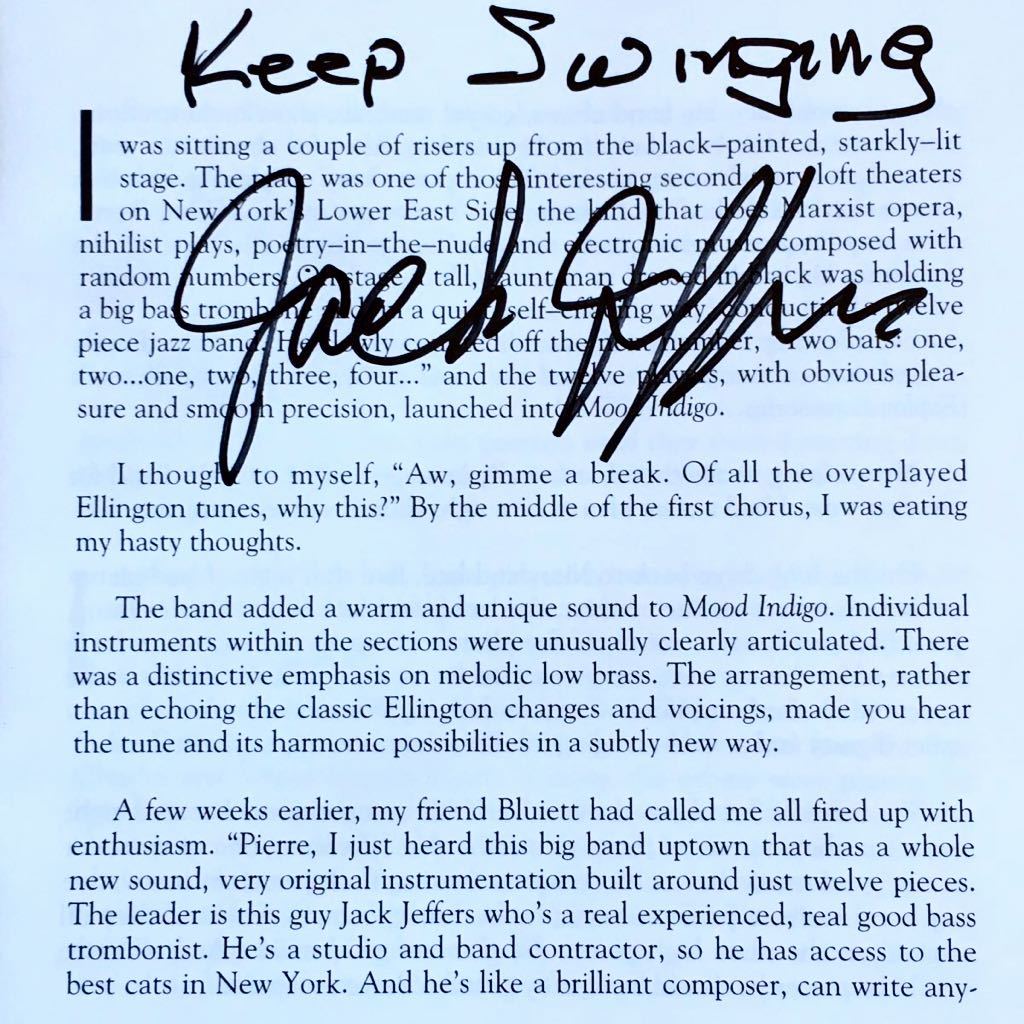 Keep Swinging
Jack Jeffers
I was sitting a couple of risers up from the black–painted, starkly–lit
stage. The place was one of those interesting second story loft theaters
on New York's Lower East Side, the kind that does Marxist opera,
nihilist plays, poetry–in–the–nude and electronic music composed with
random numbers. On stage a tall, gaunt man dressed in black was holding
a big bass trombone and in a quiet, self–effacing way, conducting a twelve
piece jazz band. He slowly counted off the next number, “Two bars: one,
two...one, two, three, four...” and the twelve players, with obvious plea-
sure and smooth precision, launched into Mood Indigo.
I thought to myself, “Aw, gimme a break. Of all the overplayed
Ellington tunes, why this?” By the middle of the first chorus, I was eating
my hasty thoughts.
The band added a warm and unique sound to Mood Indigo. Individual
instruments within the sections were unusually clearly articulated. There
was a distinctive emphasis on melodic low brass. The arrangement, rather
than echoing the classic Ellington changes and voicings, made you hear
the tune and its harmonic possibilities in a subtly new way.
A few weeks earlier, my friend Bluiett had called me all fired up with
enthusiasm. “Pierre, I just heard this big band uptown that has a whole
new sound, very original instrumentation built around just twelve pieces.
The leader is this guy Jack Jeffers who's a real experienced, real good bass
trombonist. He's a studio and band contractor, so he has access to the
best cats in New York. And he's like a brilliant composer, can write any-